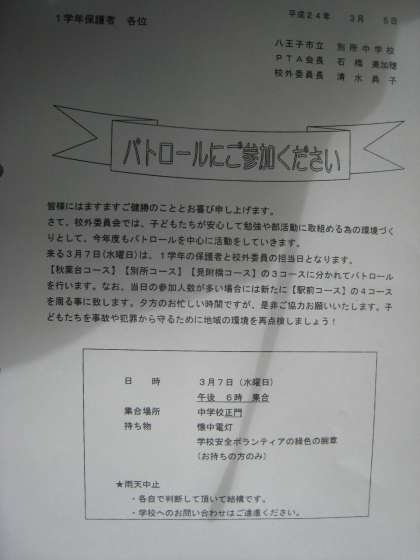 平成24年　3月　5日
1学年保護者　各位
八王子市立　別所中学校
PTA会長　石橋　美加穂
校外委員長　清水　典子
パトロールにご参加ください
皆様にはますますご健勝のこととお喜び申し上げます。
さて、校外委員会では、子どもたちが安心して勉強や部活動に取組める為の環境づく
りとして、今年度もパトロールを中心に活動をしていきます。
来る3月7日(水曜日)は、1学年の保護者と校外委員の担当日となります。
【秋葉台コース】【別所コース】【見附橋コース】の3コースに分かれてパトロール
を行います。なお、当日の参加人数が多い場合には新たに【駅前コース】の4コース
を周る事に致します。夕方のお忙しい時間ですが、是非ご協力お願いいたします。子
どもたちを事故や犯罪から守るために地域の環境を再点検しましょう！
日　時　3月7日（水曜日）
午後　6時　集合
集合場所　中学校正門
持ち物　懐中電灯
学校安全ボランティアの緑色の腕章
（お持ちの方のみ）
★雨天中止
・各自で判断して頂いて結構です。
・学校へのお問い合わせはご遠慮ください。